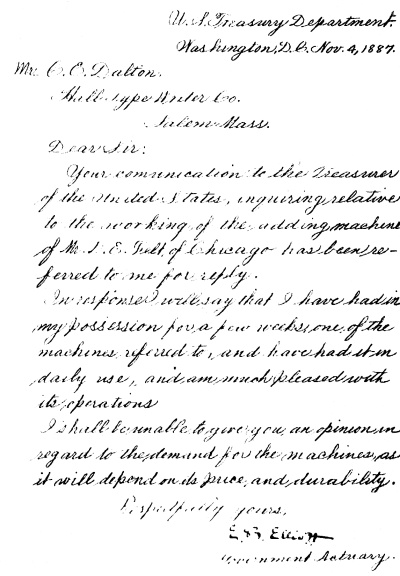 U.S. Treasury Department.
Washington, D.C. Nov. 4, 1887.
Mr. C. E. Dalton.
Hall Type Writer Co.
Salem Mass.
Dear Sir:
Your communication to the Treasurer
of the United States, inquiring relative
to the working of the adding machine
of Mr. D. E. Felt, of Chicago has been re-
ferred to me for reply.
In response I will say that I have had in
my possession for a few weeks, one, of the
machines, referred to, and have had it in
daily use, and am, much pleased with
its, operations
I shall be unable to give, you, an opinion, in
regard to the, demand for the machines, as
it will depend on its price, and, durability.
Respectfully yours,
E. B. Elliott
Government Actuary.